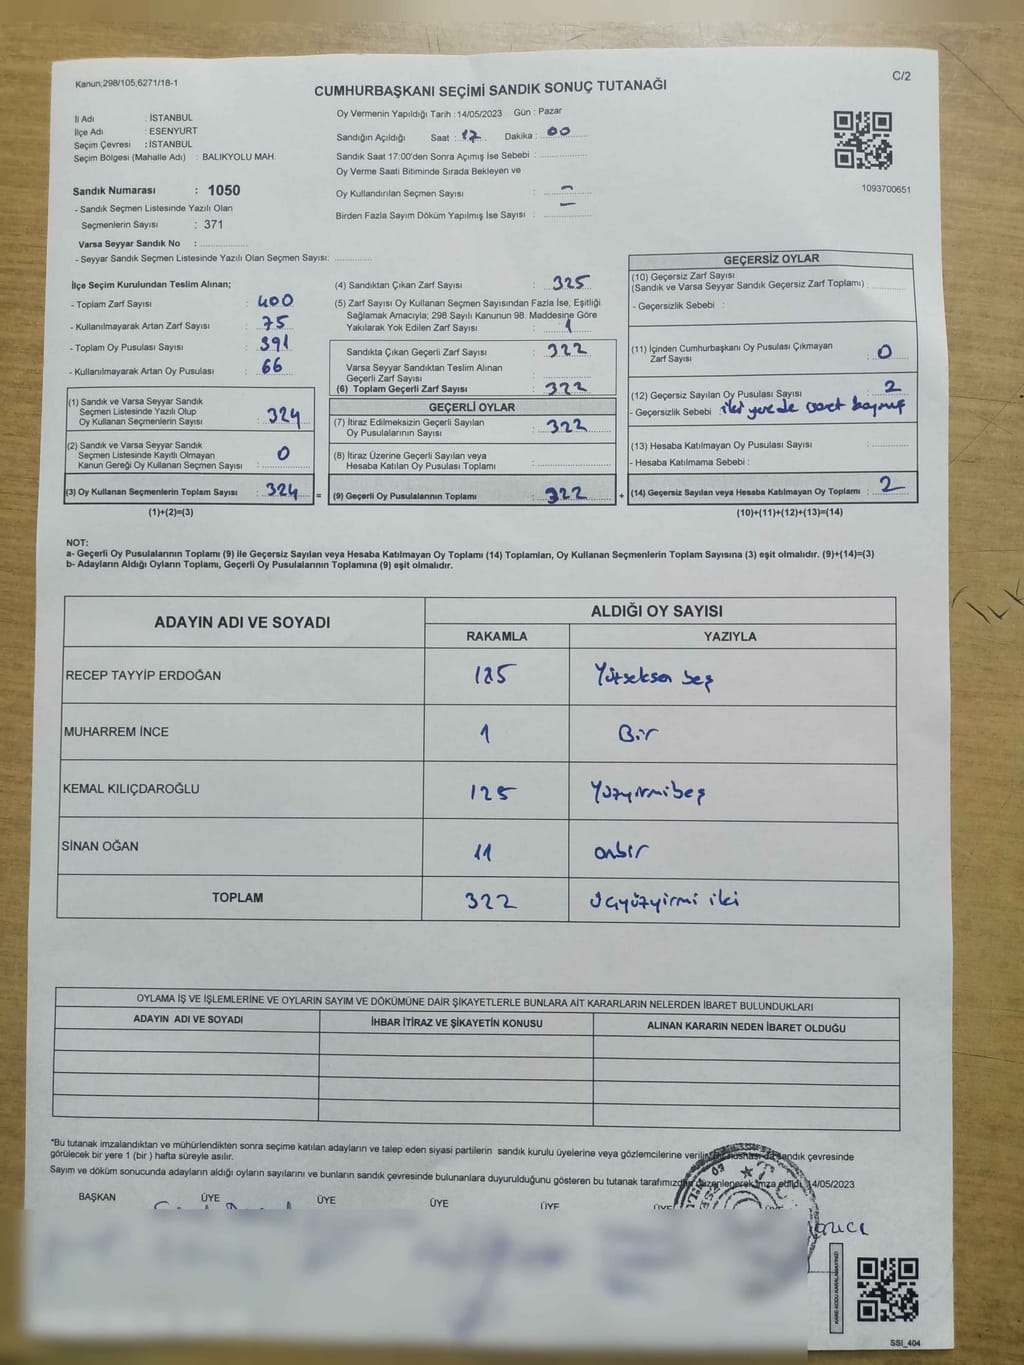 Kanun;298/105;6271/18-1
C/2
CUMHURBAŞKANI SEÇİMİ SANDIK SONUÇ TUTANAĞI
İl Adı : İSTANBUL
İlçe Adı : ESENYURT
Seçim Çevresi : İSTANBUL
Seçim Bölgesi (Mahalle Adı) : BALIKYOLU MAH.
Sandık Numarası : 1050
- Sandık Seçmen Listesinde Yazılı Olan
Seçmenlerin Sayısı : 371
Varsa Seyyar Sandık No :
- Seyyar Sandık Seçmen Listesinde Yazılı Olan Seçmen Sayısı:
Oy Vermenin Yapıldığı Tarih : 14/05/2023 Gün : Pazar
Sandığın Açıldığı Saat : 17 Dakika : 00
Sandık Saat 17:00'den Sonra Açımış İse Sebebi :
Oy Verme Saati Bitiminde Sırada Bekleyen ve
Oy Kullandırılan Seçmen Sayısı : -
Birden Fazla Sayım Döküm Yapılmış İse Sayısı : -
1093700651
İlçe Seçim Kurulundan Teslim Alınan;
- Toplam Zarf Sayısı : 400
- Kullanılmayarak Artan Zarf Sayısı : 75
- Toplam Oy Pusulası Sayısı : 391
- Kullanılmayarak Artan Oy Pusulası : 66
(1) Sandık ve Varsa Seyyar Sandık
Seçmen Listesinde Yazılı Olup
Oy Kullanan Seçmenlerin Sayısı : 324
(2) Sandık ve Varsa Seyyar Sandık
Seçmen Listesinde Kayıtlı Olmayan
Kanun Gereği Oy Kullanan Seçmen Sayısı : 0
(3) Oy Kullanan Seçmenlerin Toplam Sayısı : 324 =
(1)+(2)=(3)
(4) Sandıktan Çıkan Zarf Sayısı : 325
(5) Zarf Sayısı Oy Kullanan Seçmen Sayısından Fazla İse, Eşitliği
Sağlamak Amacıyla; 298 Sayılı Kanunun 98. Maddesine Göre
Yakılarak Yok Edilen Zarf Sayısı : 1
Sandıkta Çıkan Geçerli Zarf Sayısı : 322
Varsa Seyyar Sandıktan Teslim Alınan
Geçerli Zarf Sayısı :
(6) Toplam Geçerli Zarf Sayısı : 322
GEÇERLİ OYLAR
(7) İtiraz Edilmeksizin Geçerli Sayılan
Oy Pusulalarının Sayısı : 322
(8) İtiraz Üzerine Geçerli Sayılan veya
Hesaba Katılan Oy Pusulası Toplamı :
(9) Geçerli Oy Pusulalarının Toplamı : 322 +
GEÇERSİZ OYLAR
(10) Geçersiz Zarf Sayısı
(Sandık ve Varsa Seyyar Sandık Geçersiz Zarf Toplamı) :
- Geçersizlik Sebebi :
(11) İçinden Cumhurbaşkanı Oy Pusulası Çıkmayan
Zarf Sayısı : 0
(12) Geçersiz Sayılan Oy Pusulası Sayısı : 2
- Geçersizlik Sebebi : iki yerede
(13) Hesaba Katılmayan Oy Pusulası Sayısı :
- Hesaba Katılmama Sebebi :
(14) Geçersiz Sayılan veya Hesaba Katılmayan Oy Toplamı : 2
(10)+(11)+(12)+(13)=(14)
NOT:
a- Geçerli Oy Pusulalarının Toplamı (9) ile Geçersiz Sayılan veya Hesaba Katılmayan Oy Toplamı (14) Toplamları, Oy Kullanan Seçmenlerin Toplam Sayısına (3) eşit olmalıdır. (9)+(14)=(3)
b- Adayların Aldığı Oyların Toplamı, Geçerli Oy Pusulalarının Toplamına (9) eşit olmalıdır.
ADAYIN ADI VE SOYADI
ALDIĞI OY SAYISI
RAKAMLA YAZIYLA
RECEP TAYYİP ERDOĞAN 185 Yüzseksen beş
MUHARREM İNCE 1 Bir
KEMAL KILIÇDAROĞLU 125 Yüzyirmibeş
SİNAN OĞAN 11 onbir
TOPLAM 322 Üçyüzyirmi iki
OYLAMA İŞ VE İŞLEMLERİNE VE OYLARIN SAYIM VE DÖKÜMÜNE DAİR ŞİKAYETLERLE BUNLARA AİT KARARLARIN NELERDEN İBARET BULUNDUKLARI
ADAYIN ADI VE SOYADI İHBAR İTİRAZ VE ŞİKAYETİN KONUSU ALINAN KARARIN NEDEN İBARET OLDUĞU
*Bu tutanak imzalandıktan ve mühürlendikten sonra seçime katılan adayların ve talep eden siyasi partilerin sandık kurulu üyelerine veya gözlemcilerine verilir. Bir nüshası da sandık çevresinde
görülecek bir yere 1 (bir ) hafta süreyle asılır.
Sayım ve döküm sonucunda adayların aldığı oyların sayılarını ve bunların sandık çevresinde bulunanlara duyurulduğunu gösteren bu tutanak tarafımızdan düzenlenerek imza edildi. 14/05/2023
BAŞKAN ÜYE ÜYE ÜYE ÜYE ÜYE
SSI_404